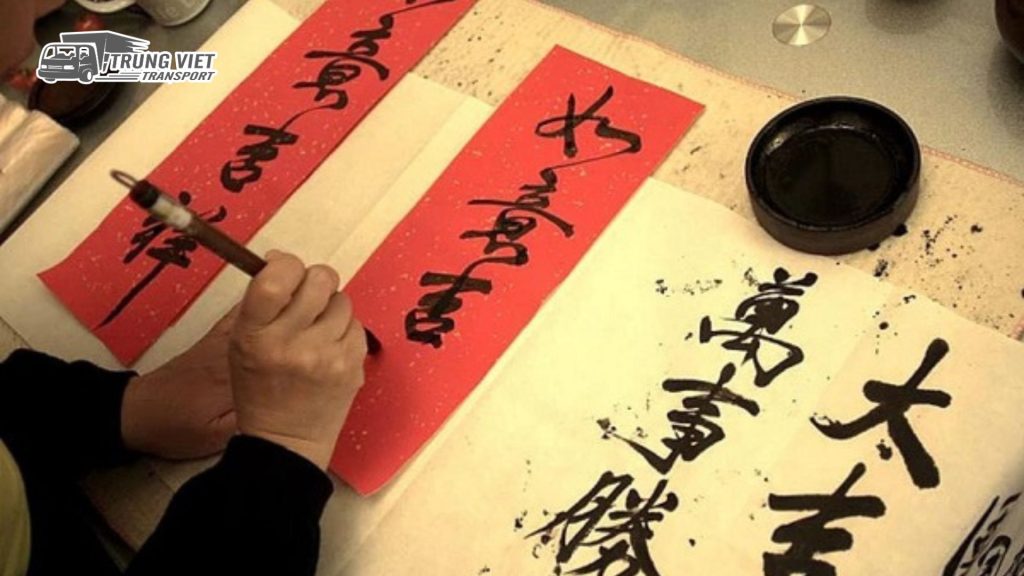 TRUNG VIET
TRANSPORT
意吉祥
如意吉
大吉
萬事勝